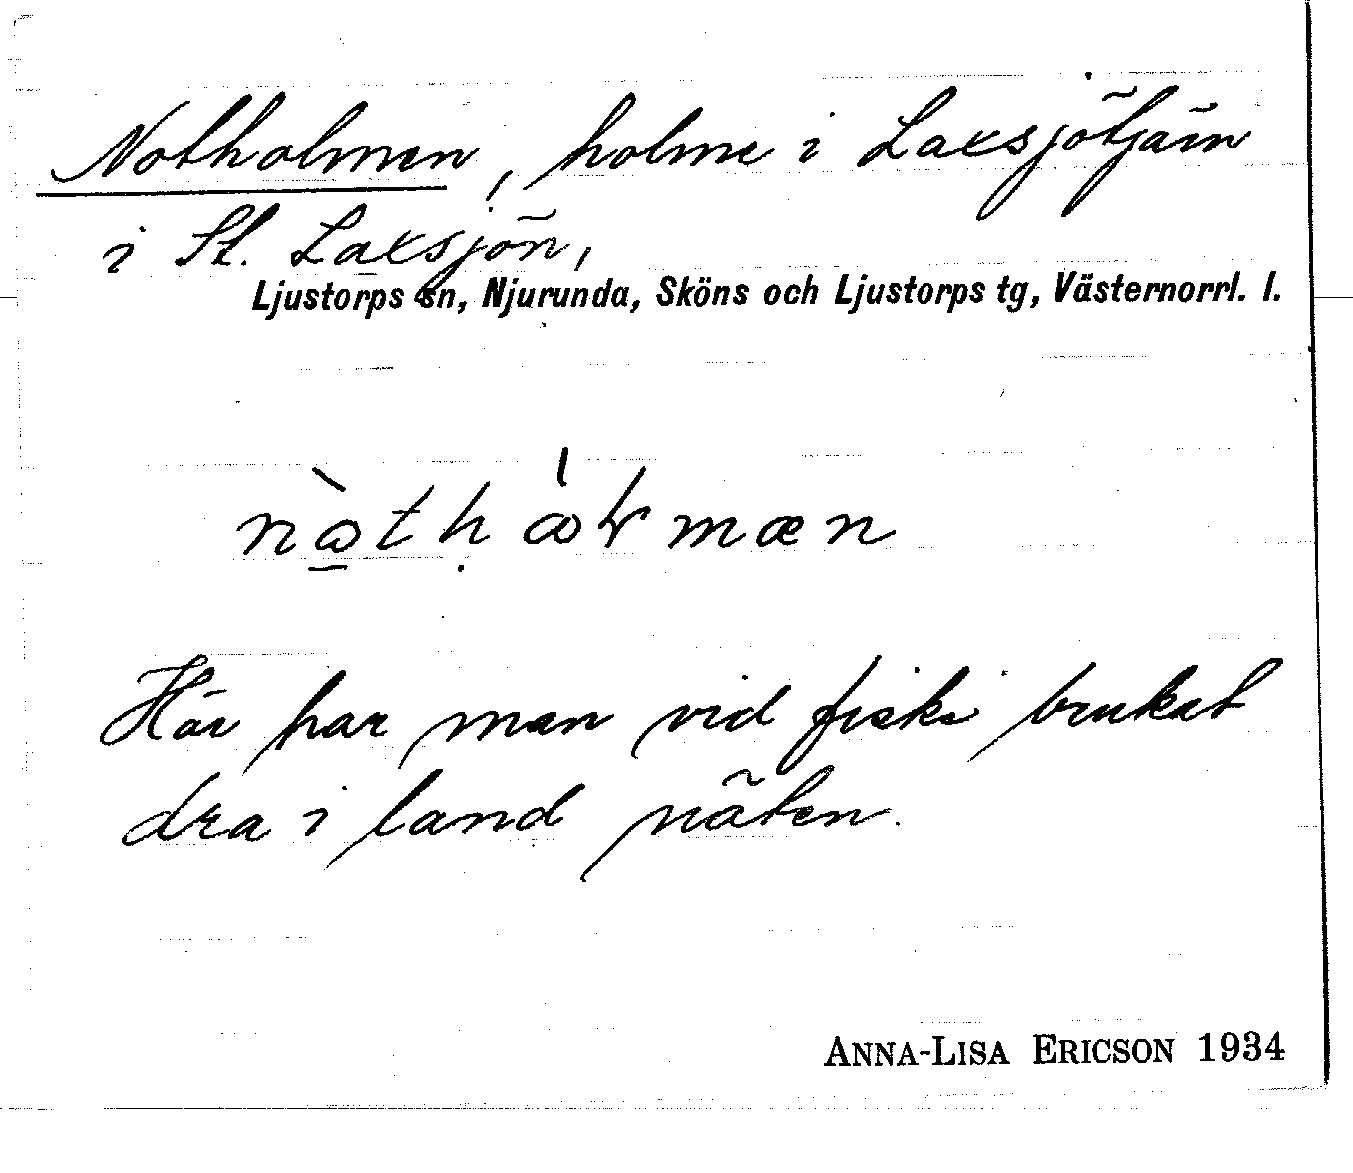 Notholmen, holme i Laxsjötjärn
i St. Laxsjön,
Ljustorps sn, Njurunda, Sköns och Ljustorps tg, Västernorrl. l.
Här har man vid fiske brukat
dra i land näten.
ANNA-LISA ERICSON 1934